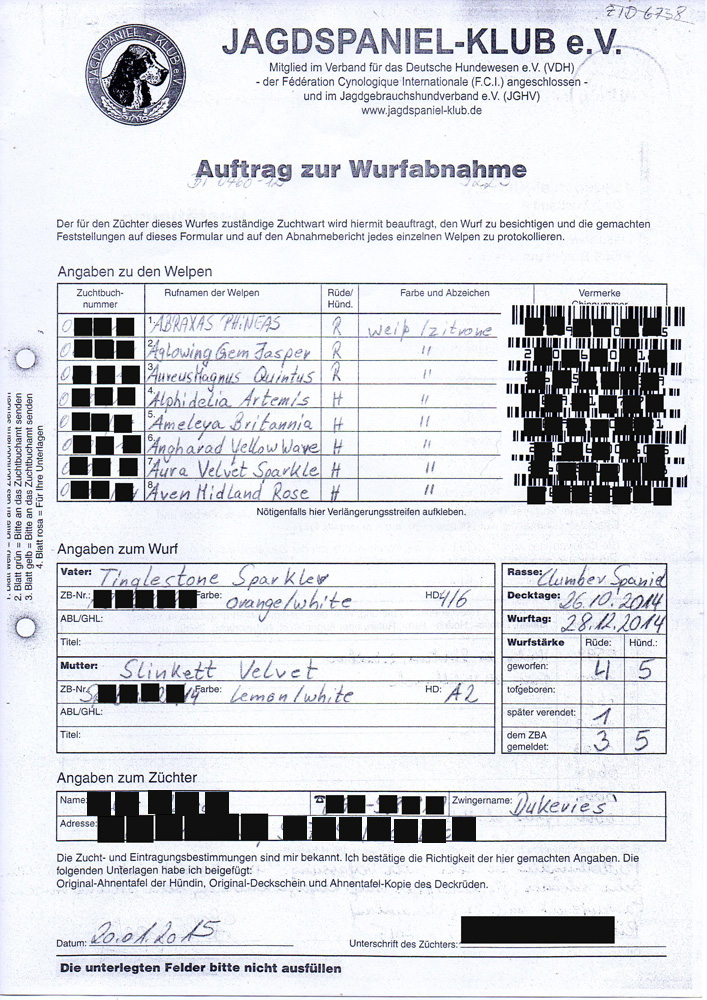 ZID 6738
JAGDSPANIEL-KLUB e.V.
JAGDSPANIEL - KLUB e.V.
Mitglied im Verband für das Deutsche Hundewesen e.V. (VDH)
- der Fédération Cynologique Internationale (F.C.I.) angeschlossen -
und im Jagdgebrauchshundverband e.V. (JGHV)
www.jagdspaniel-klub.de
Auftrag zur Wurfabnahme
Der für den Züchter dieses Wurfes zuständige Zuchtwart wird hiermit beauftragt, den Wurf zu besichtigen und die gemachten
Feststellungen auf dieses Formular und auf den Abnahmebericht jedes einzelnen Welpen zu protokollieren.
Angaben zu den Welpen
Zuchtbuch-nummer Rufnamen der Welpen Rüde/Hünd. Farbe und Abzeichen Vermerke Chipnummer
1. ABRAXAS PHINEAS R weiß/zitrone
2. Aglowing Gem Jasper R "
3. Aureus Magnus Quintus R "
4. Alphidelia Artemis H "
5. Ameleya Britannia H "
6. Angharad Yellow Wave H "
7. Aura Velvet Sparkle H "
8. Aven Midland Rose H "
Nötigenfalls hier Verlängerungsstreifen aufkleben.
2. Blatt grün = Bitte an das Zuchtbuchamt senden
3. Blatt gelb = Bitte an das Zuchtbuchamt senden
4. Blatt rosa = Für Ihre Unterlagen
Angaben zum Wurf
Vater: Tinglestone Sparkler
ZB-Nr.: Farbe: orange/white HD: 4/6
ABL/GHL:
Titel:
Mutter: Slinkett Velvet
ZB-Nr.: Farbe: lemon/white HD: A2
ABL/GHL:
Titel:
Rasse: Clumber Spaniel
Decktage: 26.10.2014
Wurftag: 28.12.2014
Wurfstärke Rüde: Hünd.:
geworfen: 4 5
totgeboren:
später verendet: 1
dem ZBA gemeldet: 3 5
Angaben zum Züchter
Name: ☎ Zwingername: Dukeries'
Adresse:
Die Zucht- und Eintragungsbestimmungen sind mir bekannt. Ich bestätige die Richtigkeit der hier gemachten Angaben. Die
folgenden Unterlagen habe ich beigefügt:
Original-Ahnentafel der Hündin, Original-Deckschein und Ahnentafel-Kopie des Deckrüden.
Datum: 20.01.2015 Unterschrift des Züchters:
Die unterlegten Felder bitte nicht ausfüllen